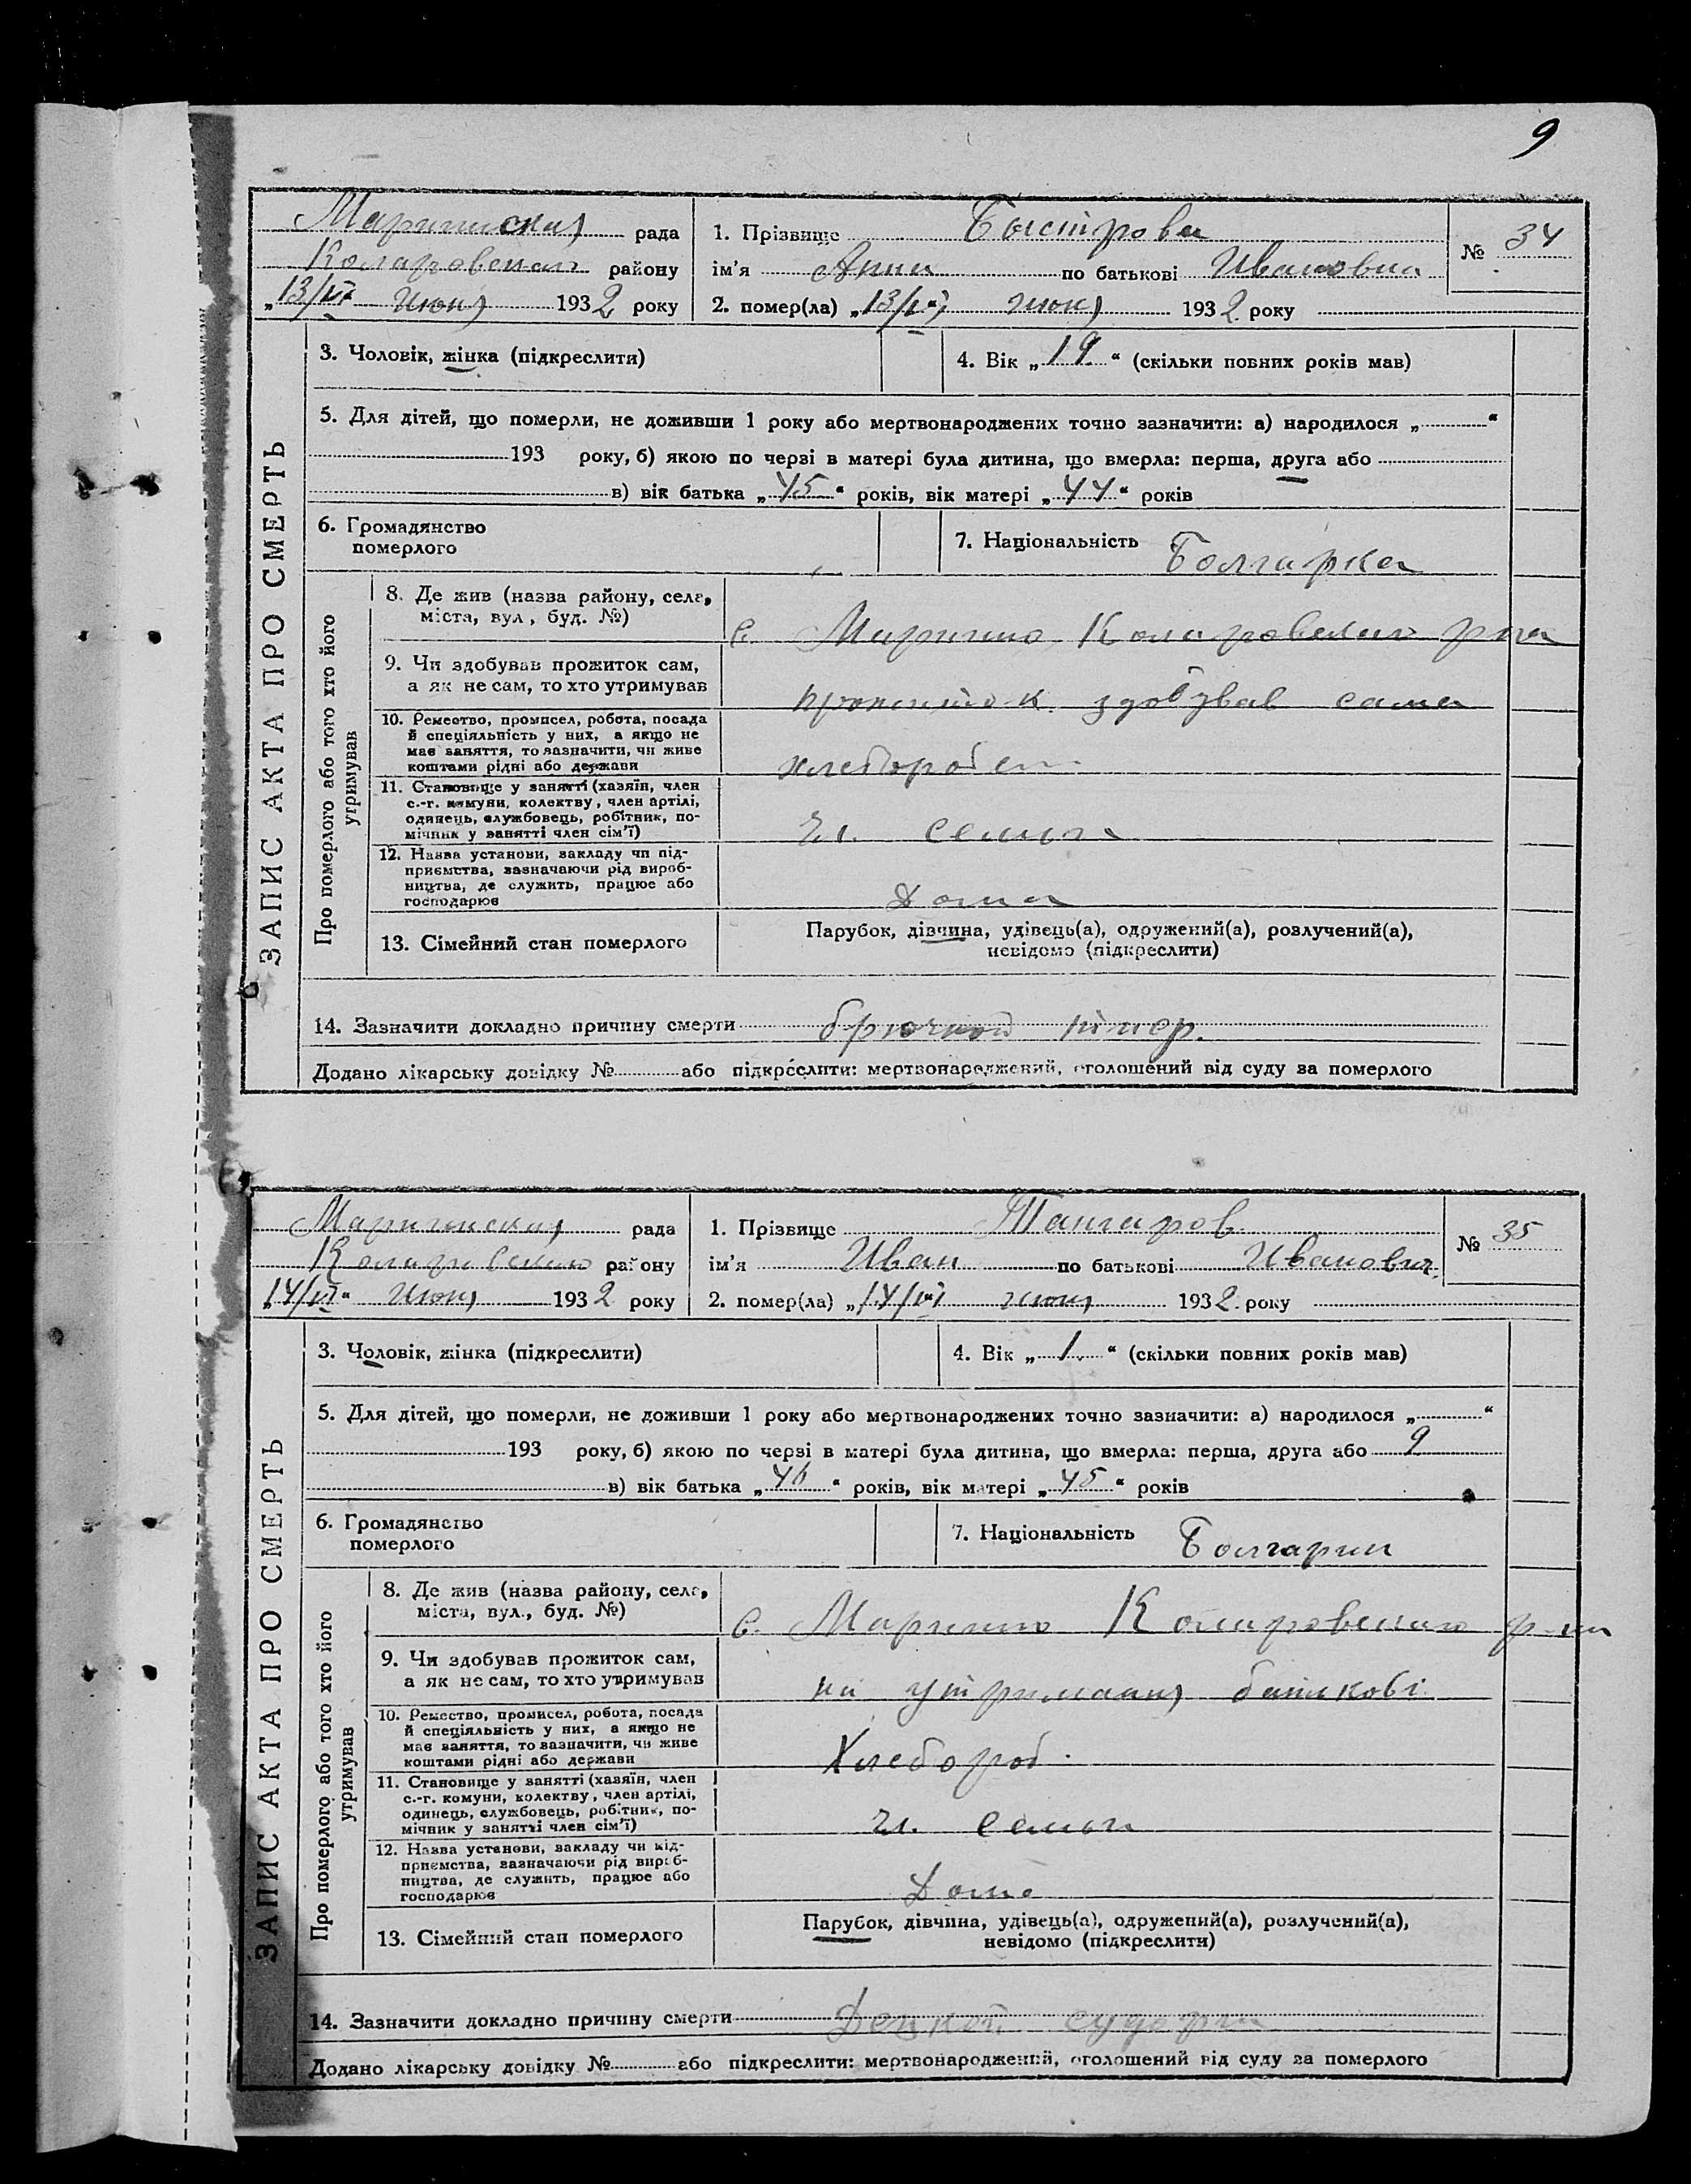 9
Маринская рада
Коларовского району
„13/VI“ июня 1932 року
1. Прізвище Быстрова
ім'я Анна по батькові Ивановна
2. помер(ла) „13/VI“ июня 1932 року
№ 34
ЗАПИС АКТА ПРО СМЕРТЬ
3. Чоловік, жінка (підкреслити)
4. Вік „19“ (скільки повних років мав)
5. Для дітей, що померли, не доживши 1 року або мертвонароджених точно зазначити: а) народилося „ “
193 року, б) якою по черзі в матері була дитина, що вмерла: перша, друга або
в) вік батька „45“ років, вік матері „44“ років
6. Громадянство
померлого
7. Національність Болгарка
Про померлого або того хто його
утримував
8. Де жив (назва району, села,
міста, вул., буд. №)
с. Марино Коларовского р-на
9. Чи здобував прожиток сам,
а як не сам, то хто утримував
прожиток здобував сама
10. Ремество, промисел, робота, посада
й спеціяльність у них, а якщо не
має заняття, то зазначити, чи живе
коштами рідні або держави
хлебороб
11. Становище у занятті (хазяїн, член
с.-г. комуни, колектву, член артілі,
одинець, службовець, робітник, по-
мічник у занятті член сім'ї)
чл. семьи
12. Назва установи, закладу чи під-
приємства, зазначаючи рід вироб-
ництва, де служить, працює або
господарює
Дома
13. Сімейний стан померлого
Парубок, дівчина, удівець(а), одружений(а), розлучений(а),
невідомо (підкреслити)
14. Зазначити докладно причину смерти брюшной
Додано лікарську довідку № або підкреслити: мертвонароджений, оголошений від суду за померлого
Маринская рада
Коларовского району
„14/VI“ июня 1932 року
1. Прізвище Танчаров
ім'я Иван по батькові Иванович
2. помер(ла) „14/VI“ июня 1932 року
№ 35
ЗАПИС АКТА ПРО СМЕРТЬ
3. Чоловік, жінка (підкреслити)
4. Вік „1“ (скільки повних років мав)
5. Для дітей, що померли, не доживши 1 року або мертвонароджених точно зазначити: а) народилося „ “
193 року, б) якою по черзі в матері була дитина, що вмерла: перша, друга або 9
в) вік батька „46“ років, вік матері „45“ років
6. Громадянство
померлого
7. Національність Болгарин
Про померлого або того хто його
утримував
8. Де жив (назва району, села,
міста, вул., буд. №)
с. Марино Коларовского р-на
9. Чи здобував прожиток сам,
а як не сам, то хто утримував
на утримання батькові
10. Ремество, промисел, робота, посада
й спеціяльність у них, а якщо не
має заняття, то зазначити, чи живе
коштами рідні або держави
Хлебороб.
11. Становище у занятті (хазяїн, член
с.-г. комуни, колектву, член артілі,
одинець, службовець, робітник, по-
мічник у занятті член сім'ї)
чл. семьи
12. Назва установи, закладу чи під-
приємства, зазначаючи рід вироб-
ництва, де служить, працює або
господарює
Дома
13. Сімейний стан померлого
Парубок, дівчина, удівець(а), одружений(а), розлучений(а),
невідомо (підкреслити)
14. Зазначити докладно причину смерти
Додано лікарську довідку № або підкреслити: мертвонароджений, оголошений від суду за померлого